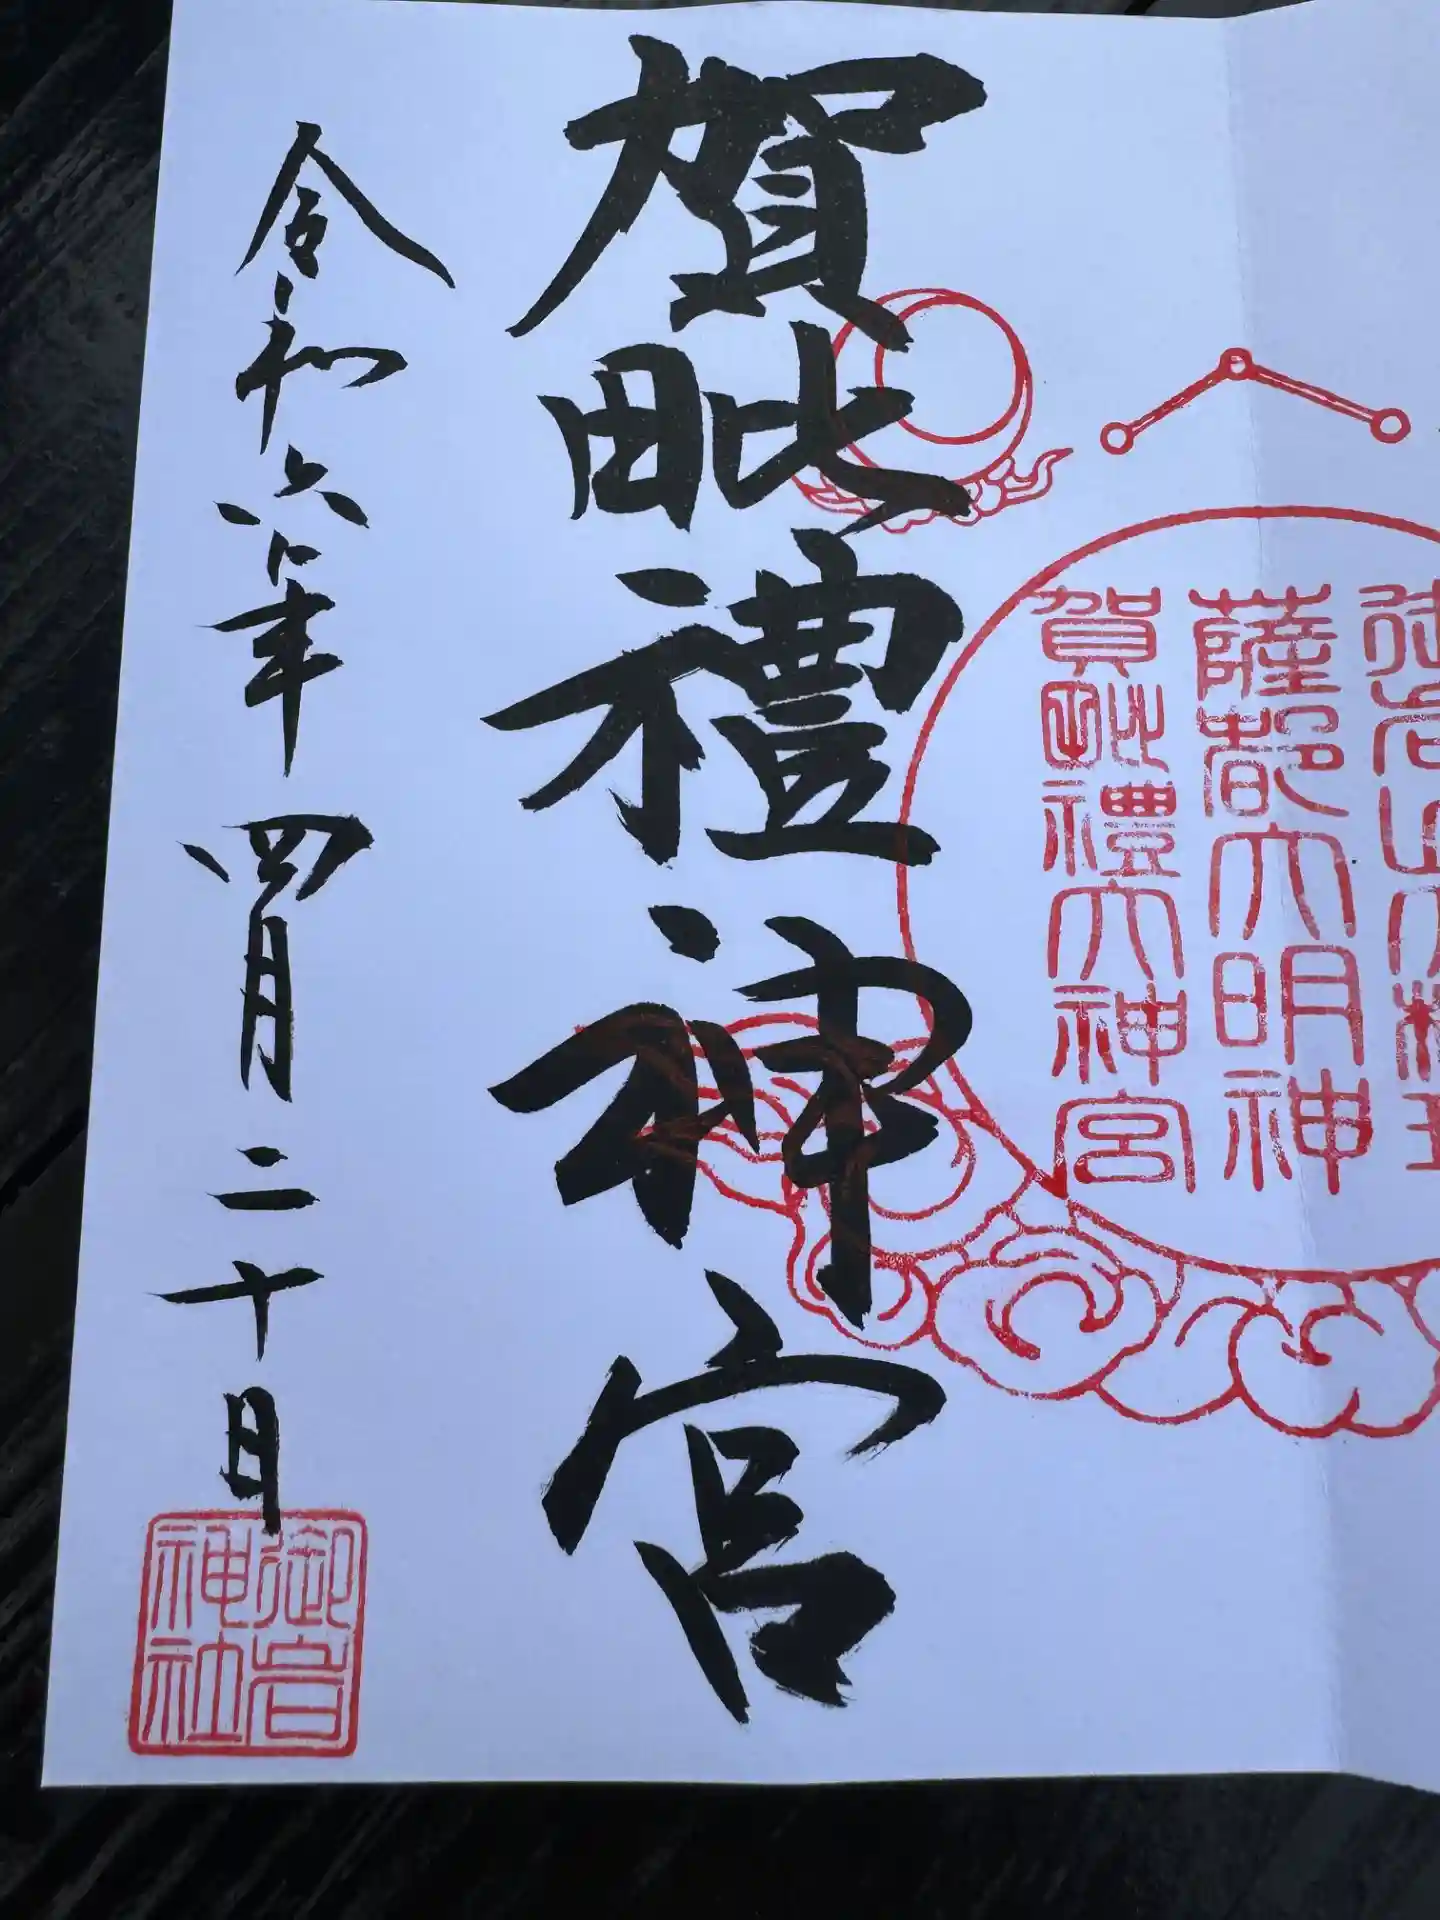 薩都大明神
賀毗禮大神宮
賀毗禮神宮
令和六年四月二十日
御岩
神社